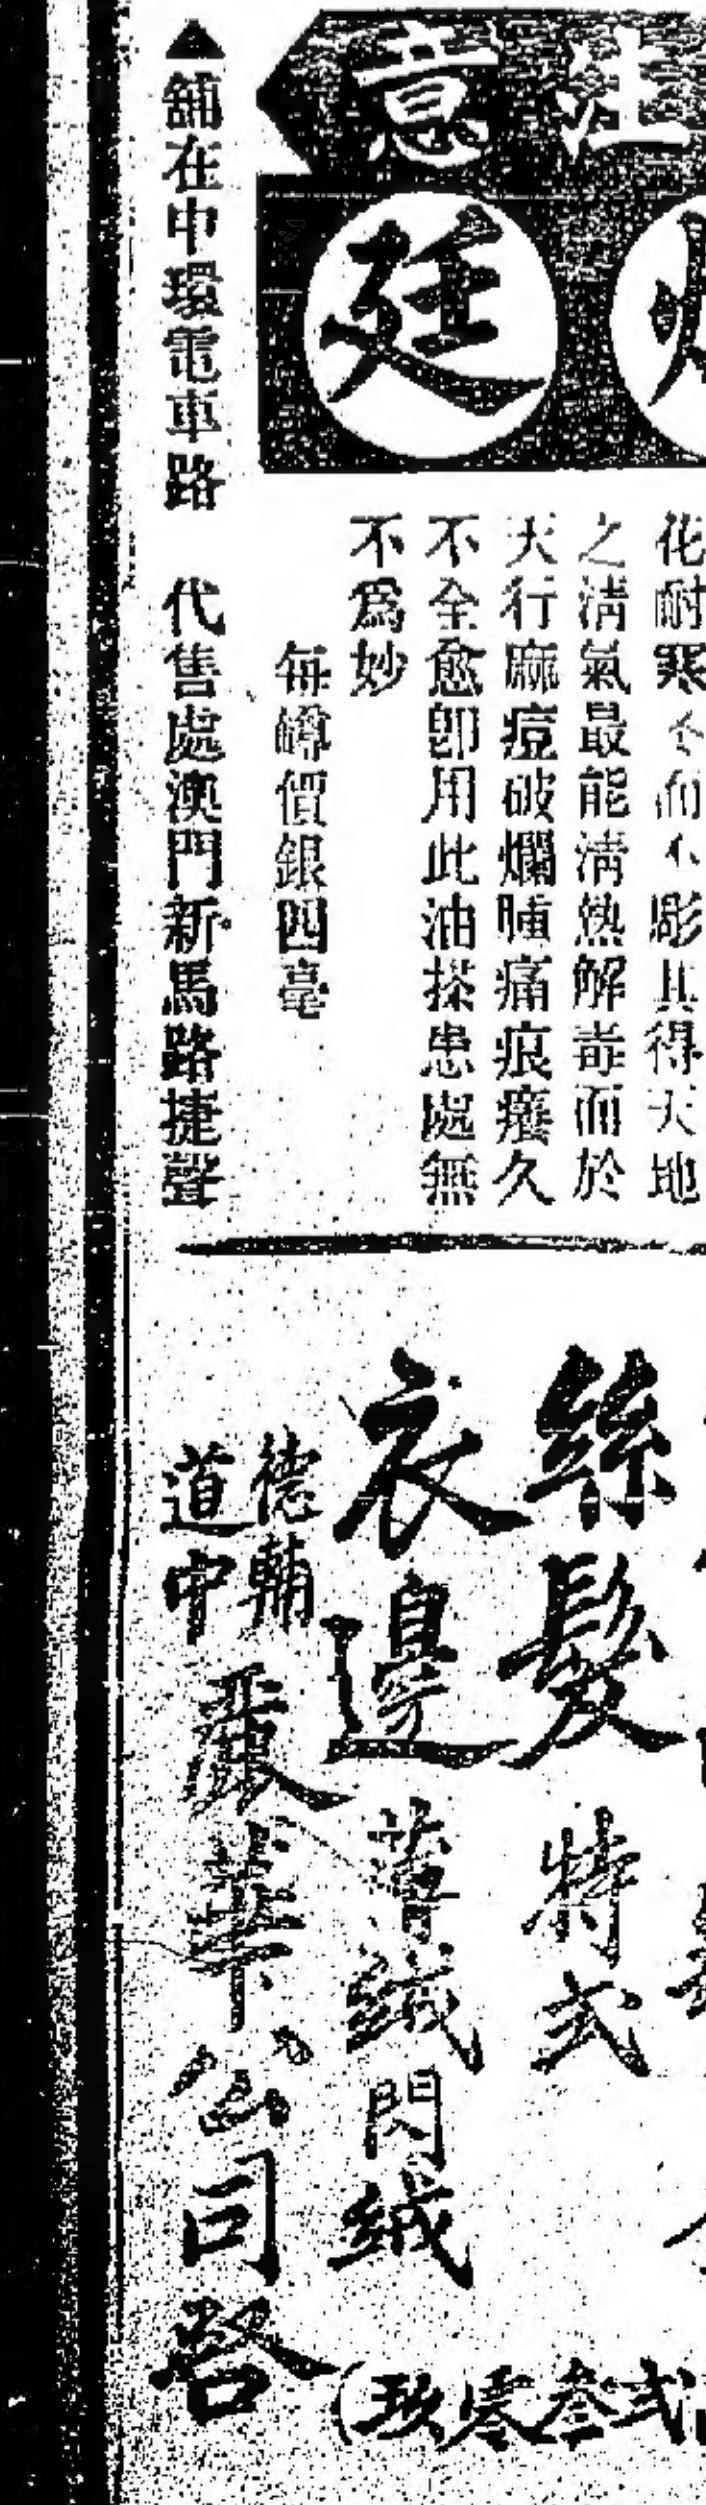 注意
廷
花耐寒冬而不彫其得天地
之清氣最能清熱解毒而於
天行麻痘破爛腫痛痕癢久
不全愈卽用此油搽患處無
不爲妙
每罇價銀四毫
▲舖在中環電車路　代售處澳門新馬路捷聲
絲髮　特式
衣邊　蕾絨閃絨
德輔道中　麗華公司啓
式叁零玖)